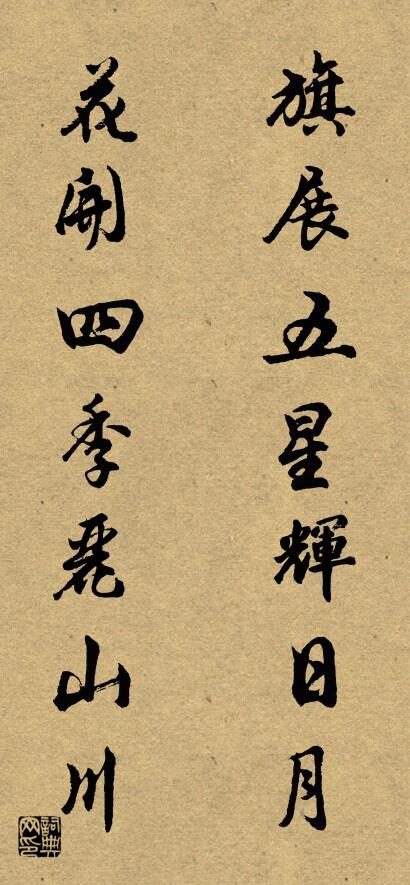 旗展五星輝日月
花開四季麗山川
詞典网印